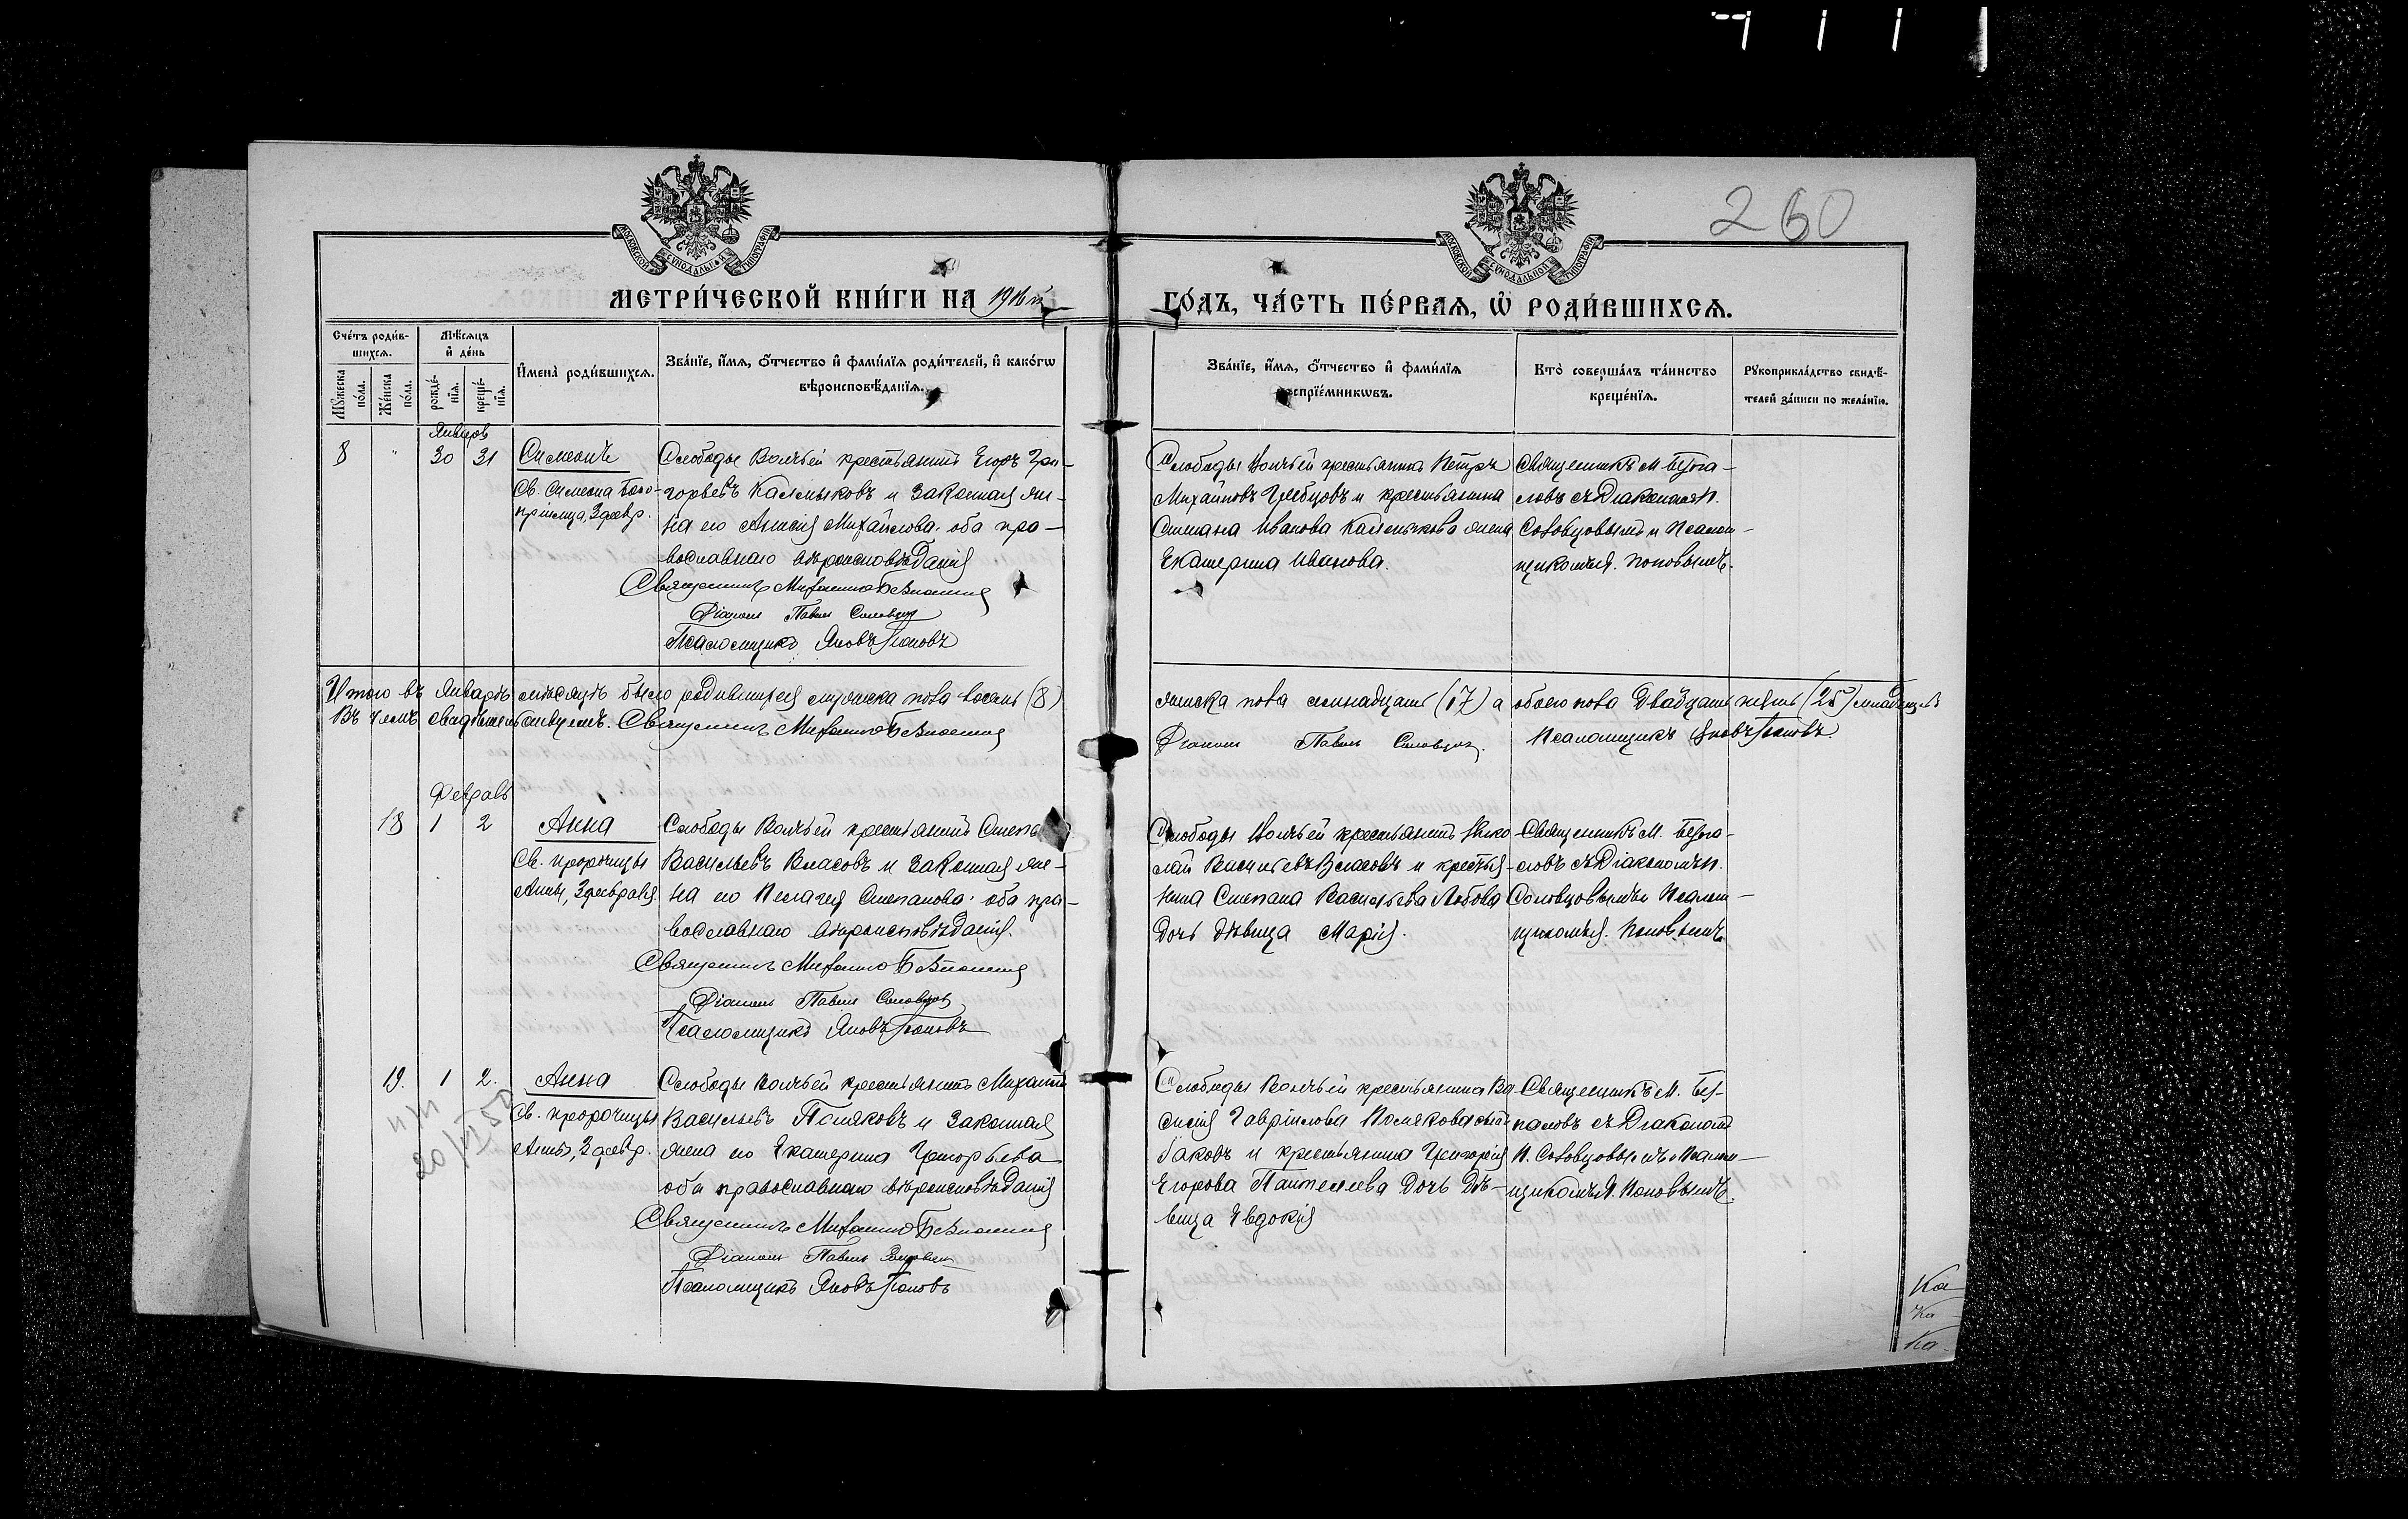 260
МОСКОВСКОЙ СѴНОДАЛЬНОЙ ТИПОГРАФІИ
МОСКОВСКОЙ СѴНОДАЛЬНОЙ ТИПОГРАФІИ
МЕТРИ́ЧЕСКОЙ КНИ́ГИ НА 1916 й
ГО́ДЪ, ЧА́СТЬ ПЕ́РВАЯ, Ѽ РОДИ́ВШИХСЯ.
Сче́тъ роди́в-
шихся.
Мꙋжеска по́ла.
Же́нска по́ла.
Мѣ́сяцъ
и҆ де́нь
рожде́-
нїя.
креще́-
нїя.
И҆мена̀ роди́вшихся.
Зва́нїе, и҆́мя, ѻ҆́тчество и҆ фами́лїя роди́телей, и҆ како́гѡ
вѣроисповѣ́данїя.
Зва́нїе, и҆́мя, ѻ҆́тчество и҆ фами́лїя
воспрїе́мникѡвъ.
Кто̀ соверша́лъ та́инство
креще́нїя.
Рꙋкоприкла́дство свидѣ́-
телей за́писи по жела́нїю.
Январь
8 " 30 31 Симеонъ
Св. Симеона Бого-
приимца, 3 февр.
Слободы Волчьей крестьянинъ Егоръ Гри-
горьевъ Калмыковъ и законная же-
на его Анисія Михайлова. оба пра-
вославнаго вѣроисповѣданія
Священникъ Митрофанъ
Діаконъ Павелъ Соловцовъ
Псаломщикъ Яковъ Поповъ
Слободы Волчьей крестьянинъ Петръ
Михайловъ Гребцовъ и крестьянина
Степана Иванова Калмыкова жена
Екатерина Иванова.
Священникъ М.
съ Діакономъ П.
Соловцовымъ и Псалом-
щикомъ Я. Поповымъ.
Итого въ Январѣ мѣсяцѣ было родившихся мужеска пола восемь (8)
женска пола семнадцать (17) а обоего пола двадцать пять (25) младенцевъ
Въ чемъ свидѣтельствуемъ. Священникъ Митрофанъ
Діаконъ Павелъ Соловцовъ. Псаломщикъ Яковъ Поповъ.
Февраль
18 1 2 Анна
Св. пророчицы
Анны, 3 февраля.
Слободы Волчьей крестьянинъ
Васильевъ Власовъ и законная же-
на его Пелагея Степанова. оба пра-
вославнаго вѣроисповѣданія.
Священникъ Митрофанъ
Діаконъ Павелъ Соловцовъ
Псаломщикъ Яковъ Поповъ
Слободы Волчьей крестьянинъ Нико-
лай Васильевъ Власовъ и крестья-
нина Степана Васильева
дочь дѣвица Марія.
Священникъ М.
съ Діакономъ П.
Соловцовымъ и Псалом-
щикомъ Я. Поповымъ.
19. 1 2. Анна
Св. пророчицы
Анны, 3 февр.
Слободы Волчьей крестьянинъ Михаилъ
Васильевъ Поляковъ и законная
жена его Екатерина Григорьева
оба православнаго вѣроисповѣданія
Священникъ Митрофанъ
Діаконъ Павелъ Соловцовъ
Псаломщикъ Яковъ Поповъ
Слободы Волчьей крестьянина Ва-
силія Гавріилова Полякова сынъ
Іаковъ и крестьянина Григорія
Егорова Пантелеева дочь дѣ-
вица Евдокія
Священникъ М.
съ Діакономъ
П. Соловцовымъ и Псалом-
щикомъ Я. Поповымъ.
Ка
Ка
Ка